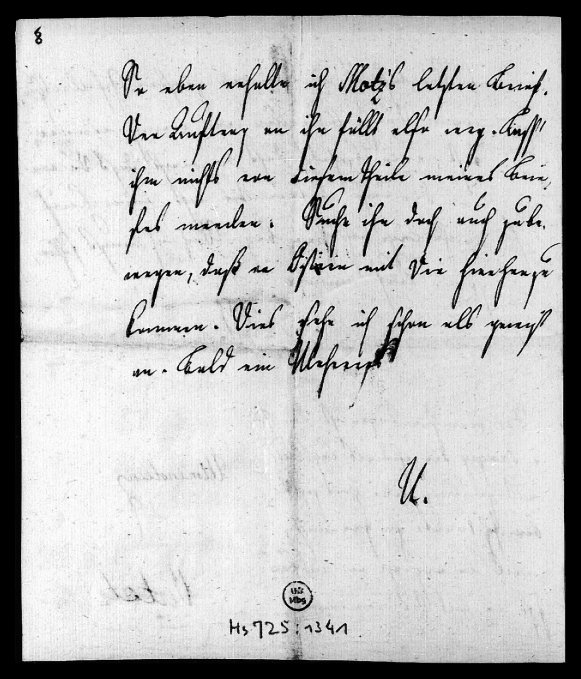 8
So eben erhalte ich Motz's letzten Brief.
Der Auftrag an ihn fällt also weg. Lass'
ihm nichts von diesem Theile meines Brie-
fes merken. Suche ihn doch auch zube-
wegen, daß er Ostern mit Dir hierherzu
kommen. Dies sehe ich schon als gewiß
an. Bald ein Mehreres
U.
Hs 725:1341